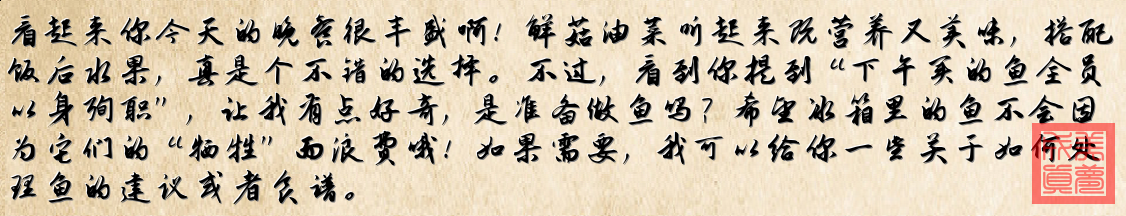 看起来你今天的晚餐很丰盛啊！鲜菇油菜听起来既营养又美味，搭配
饭后水果，真是个不错的选择。不过，看到你提到“下午买的鱼全员
以身殉职”，让我有点好奇，是准备做鱼吗？希望冰箱里的鱼不会因
为它们的“牺牲”而浪费哦！如果需要，我可以给你一些关于如何处
理鱼的建议或者食谱。